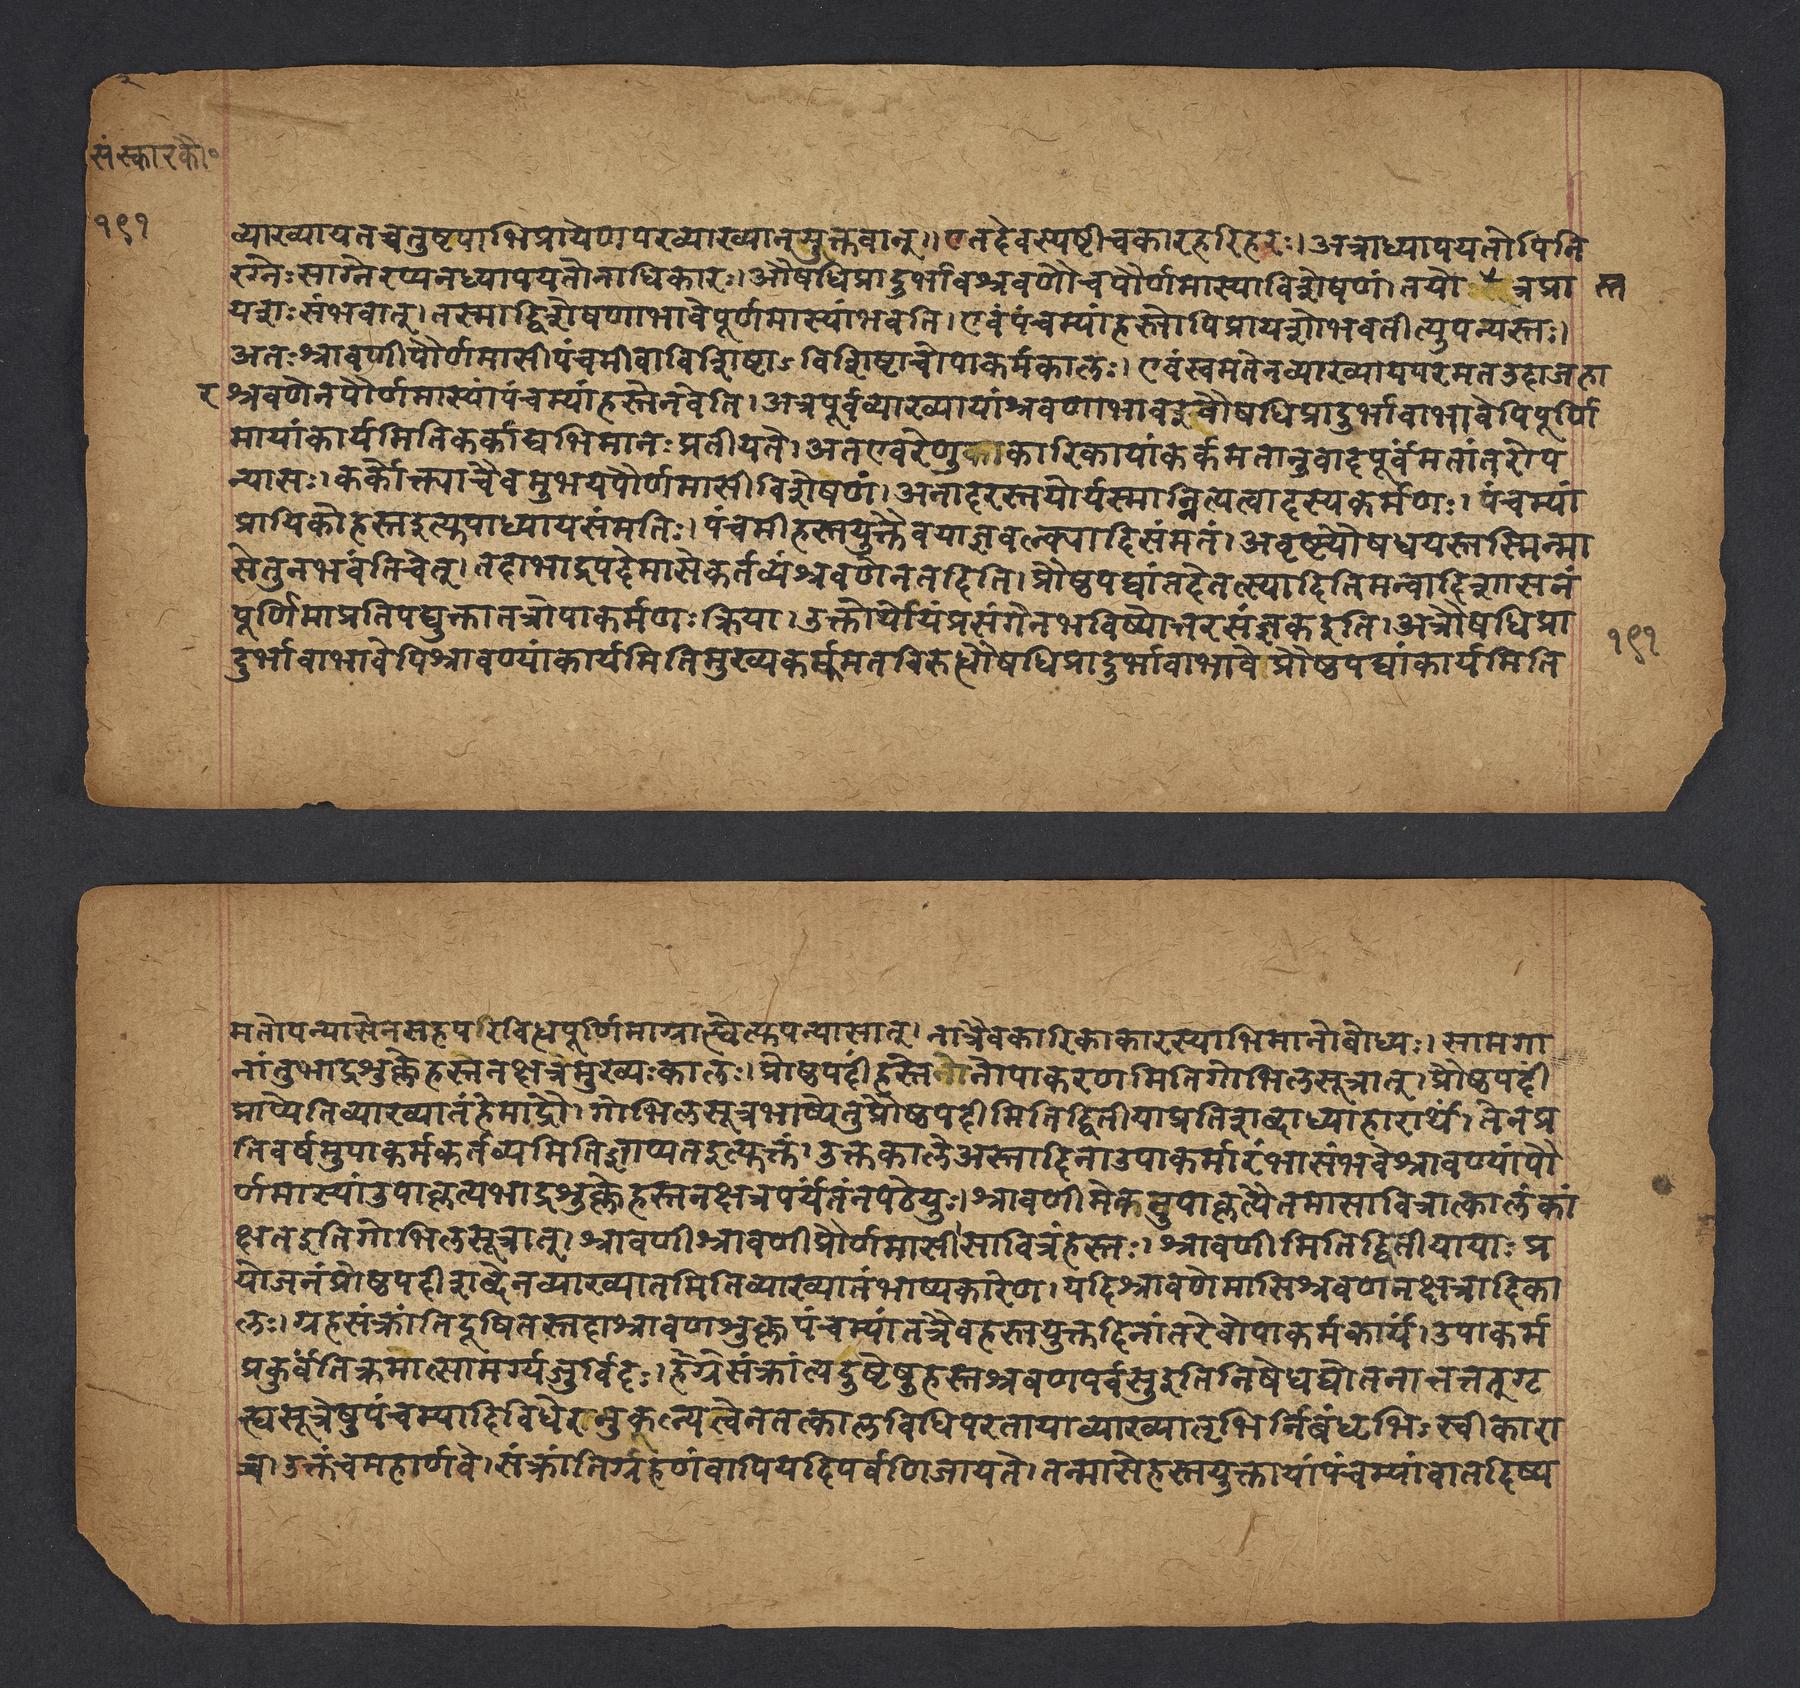 संस्कारकौ॰
१९१
व्याख्यायतच्चतुष्टपाभिप्रायेणपरव्याख्यानमुक्तवान्॥एतदेवस्पष्टीचकारहरिहरः।अत्राध्यापयतोपिति
रग्नेःसाग्नेरप्यनध्यापयतोनाधिकारः।औषधिप्रादुर्भावश्रवणौचपौर्णमास्याविशेषणं।तयो त्रप्रा स्त
यशःसंभवात्।तस्माद्विशेषणाभावेपूर्णमास्यांभवति।एवंपंचम्यांहस्तोपिप्रायशोभवतीत्युपन्यस्तः।
अतःश्रावणीपौर्णमासीपंचमीवाविशिष्टाऽविशिष्टाचोपाकर्मकालः।एवंस्वमतेनव्याख्यायपरमतउदाजहा
र श्रवणेनपौर्णमास्यांपंचम्यांहस्तेनवेति।अत्रपूर्वव्याख्यायांश्रवणाभावइवौषधिप्रादुर्भावाभावेपिपूर्णि
मायांकार्यमितिकर्काद्यभिमानःप्रतीयते।अतएवरेणुकाकारिकायांकर्कमतानुवादपूर्वमतांतरोप
न्यासः।कर्कोक्त्याचैवमुभयपौर्णमासीविशेषणं।अनादरस्तयोर्यस्मान्नित्यत्वादस्यकर्मणः।पंचम्यां
प्रायिकोहस्तइत्युपाध्यायसंमतिः।पंचमीहस्तयुक्तैवयाज्ञवल्क्यादिसंमतं।अवृष्ट्यौषधयस्तस्मिन्मा
सेतुनभवंतिचेत्।तदाभाद्रपदेमासेकर्तव्यंश्रवणेनतदिति।प्रौष्ठपद्यांतदैतत्स्यादितिमन्वादिशासनं
पूर्णिमाप्रतिपद्युक्तातत्रोपाकर्मणःक्रिया।उक्तोर्थोयंप्रसंगेनभविष्योत्तरसंज्ञकइति।अत्रौषधिप्रा
दुर्भावाभावेपिश्रावण्यांकार्यमितिमुख्यकर्कमतविरुद्धौषधिप्रादुर्भावाभावेप्रौष्ठपद्यांकार्यमिति
१९१
मतोपन्यासेनसहपरिविधपूर्णिमाग्राह्यत्वेत्युपन्यासात्।नात्रैवकारिकाकारस्याभिमानोबोध्यः।सामगा
नांतुभाद्रशुक्लेहस्तनक्षत्रेमुख्यःकालः।प्रौष्ठपदींहस्तेनोपाकरणमितिगोभिलसूत्रात्।प्रौष्ठपदीं
प्राप्येतिव्याख्यातंहेमाद्रौ।गोभिलसूत्रभाष्येतुप्रौष्ठपदीमितिद्वितीयाप्रतिशब्दाध्याहारार्थं।तेनप्र
तिवर्षमुपाकर्मकर्तव्यमितिज्ञाप्यतइत्युक्तं।उक्तकालेअस्तादिनाउपाकर्मारंभासंभवेश्रावण्यांपौ
र्णमास्यांउपाकृत्यभाद्रशुक्लेहस्तनक्षत्रपर्यंतंनपठेयुः।श्रावणीमेकमुपाकृत्यैतमासावित्रात्कालंकां
क्षतइतिगोभिलसूत्रात्।श्रावणींश्रावणीपौर्णमासीं।सावित्रंहस्तः।श्रावणीमितिद्वितीयायाःप्र
योजनंप्रौष्ठपदीशब्देनव्याख्यातमितिव्याख्यातंभाष्यकारेण।यदिश्रावणेमासिश्रवणनक्षत्रादिका
लः।ग्रहसंक्रांतिदूषितस्तदाश्रावणशुक्लपंचम्यांतत्रैवहस्तयुक्तदिनांतरेवोपाकर्मकार्यं।उपाकर्म
प्रकुर्वंतिक्रमात्सामर्ग्यजुर्विदः।ग्रहसंक्रांत्यदुष्टेषुहस्तश्रवणपर्वसुइतिनिषेधद्योतनात्तत्तत्गृ
ह्यसूत्रेषुपंचम्यादिविधेरनुकूल्येत्वेनतत्कालविधिपरतायाव्याख्यातृभिर्निबंधृभिःस्वीकारा
च्च।उक्तंचमहार्णवे।संक्रांतिर्ग्रहणंवापियदिपर्वणिजायते।तन्मासेहस्तयुक्तायांपंचम्यांवातदिष्य